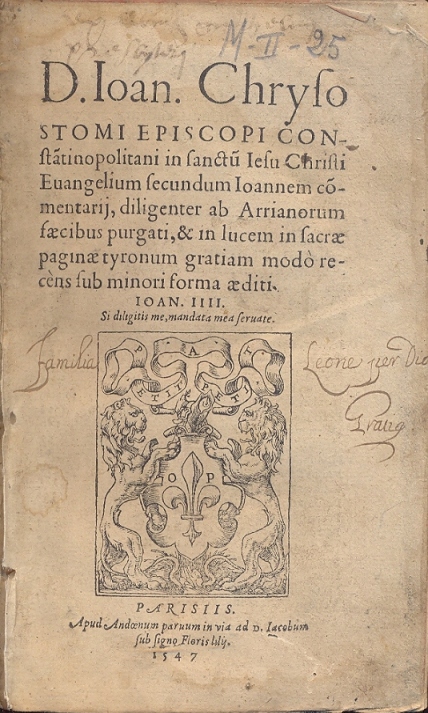 M-II-25
D. Ioan. Chryſo
STOMI EPISCOPI CON-
ſtãtinopolitani in ſanctũ Ieſu Chriſti
Euangelium ſecundum Ioannem cõ-
mentarij, diligenter ab Arrianorum
fæcibus purgati, & in lucem in ſacræ
paginæ tyronum gratiam modò re-
cèns ſub minori forma æditi.
IOAN. IIII.
Si diligitis me, mandata mea ſeruate.
Familia
Leone per Dio
O P
PARISIIS.
Apud Andœnum paruum in via ad D. Iacobum
ſub ſigno Floris lilij.
1547